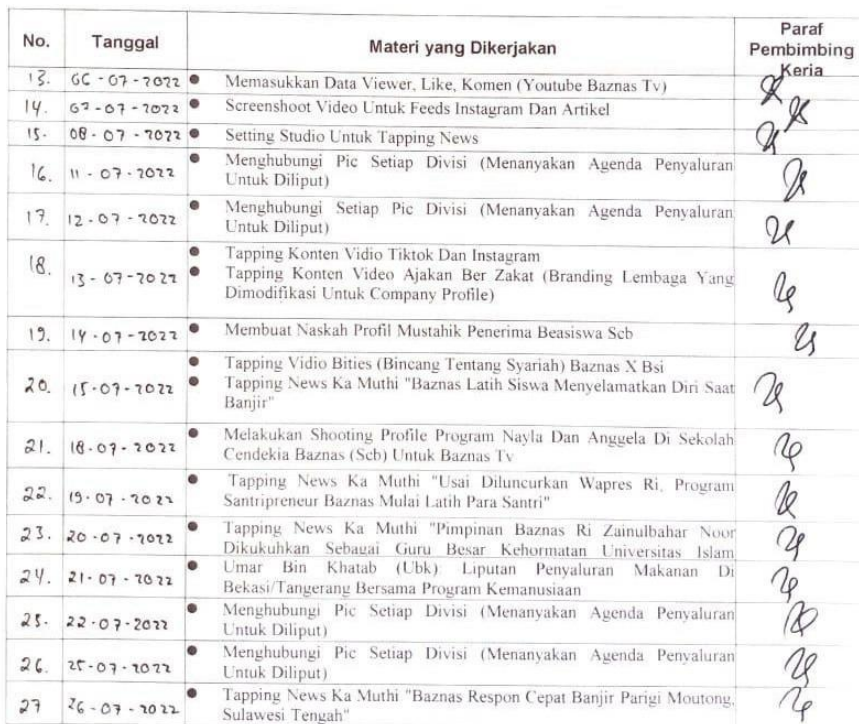 No. Tanggal Materi yang Dikerjakan Paraf
Pembimbing
Kerja
13. 06 - 07 - 2022 ● Memasukkan Data Viewer, Like, Komen (Youtube Baznas Tv)
14. 07 - 07 - 2022 ● Screenshoot Video Untuk Feeds Instagram Dan Artikel
15. 08 - 07 - 2022 ● Setting Studio Untuk Tapping News
16. 11 - 07 - 2022 ● Menghubungi Pic Setiap Divisi (Menanyakan Agenda Penyaluran
Untuk Diliput)
17. 12 - 07 - 2022 ● Menghubungi Setiap Pic Divisi (Menanyakan Agenda Penyaluran
Untuk Diliput)
18. ● Tapping Konten Vidio Tiktok Dan Instagram
13 - 07 - 2022 ● Tapping Konten Video Ajakan Ber Zakat (Branding Lembaga Yang
Dimodifikasi Untuk Company Profile)
19. 14 - 07 - 2022 ● Membuat Naskah Profil Mustahik Penerima Beasiswa Scb
● Tapping Vidio Bities (Bincang Tentang Syariah) Baznas X Bsi
20. 15 - 07 - 2022 ● Tapping News Ka Muthi "Baznas Latih Siswa Menyelamatkan Diri Saat
Banjir"
21. 18 - 07 - 2022 ● Melakukan Shooting Profile Program Nayla Dan Anggela Di Sekolah
Cendekia Baznas (Scb) Untuk Baznas Tv
22. 19 - 07 - 2022 ● Tapping News Ka Muthi "Usai Diluncurkan Wapres Ri, Program
Santripreneur Baznas Mulai Latih Para Santri"
23. 20 - 07 - 2022 ● Tapping News Ka Muthi "Pimpinan Baznas Ri Zainulbahar Noor
Dikukuhkan Sebagai Guru Besar Kehormatan Universitas Islam
24. 21 - 07 - 2022 ● Umar Bin Khatab (Ubk) Liputan Penyaluran Makanan Di
Bekasi/Tangerang Bersama Program Kemanusiaan
25. 22 - 07 - 2022 ● Menghubungi Pic Setiap Divisi (Menanyakan Agenda Penyaluran
Untuk Diliput)
26. 25 - 07 - 2022 ● Menghubungi Pic Setiap Divisi (Menanyakan Agenda Penyaluran
Untuk Diliput)
27 26 - 07 - 2022 ● Tapping News Ka Muthi "Baznas Respon Cepat Banjir Parigi Moutong,
Sulawesi Tengah"